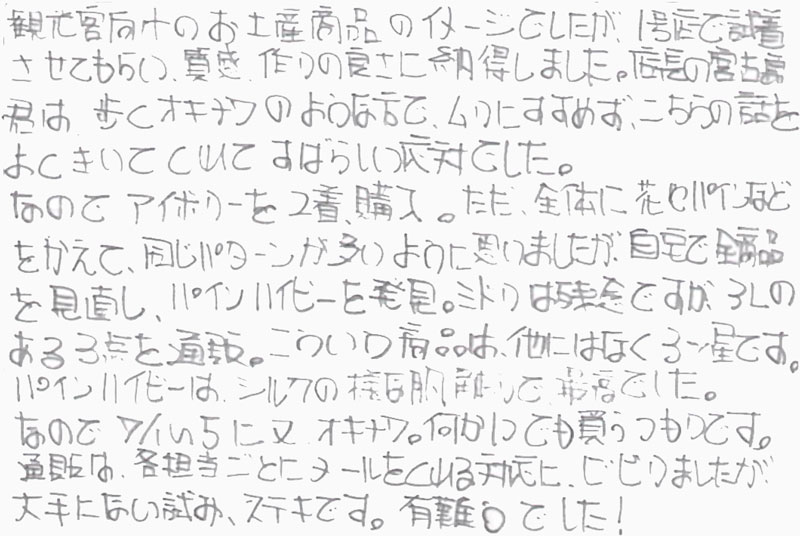 観光客向けのお土産商品のイメージでしたが、1号店で試着
させてもらい、質感、作りの良さに納得しました。店長の宮古島
君は、歩くオキナワのような方で、ムリにすすめず、こちらの話を
よくきいてくれてすばらしい応対でした。
なのでアイボリーを2着、購入。ただ、全体に花やパインなど
をかえて、同じパターンが多いように思いましたが、自宅で全商品
を見直し、パインハイビーを発見。ミドリは残念ですが、3Lの
ある3点を通販。こういう商品は、他にはなく3つ星です。
パインハイビーは、シルクの様な肌触りで、最高でした。
なので7/1い5に又オキナワ。何かしつでも買うつもりです。
通販は、各担当ごとにメールをくれる対応に、ビビりましたが
大手にない試み、ステキです。有難うでした!